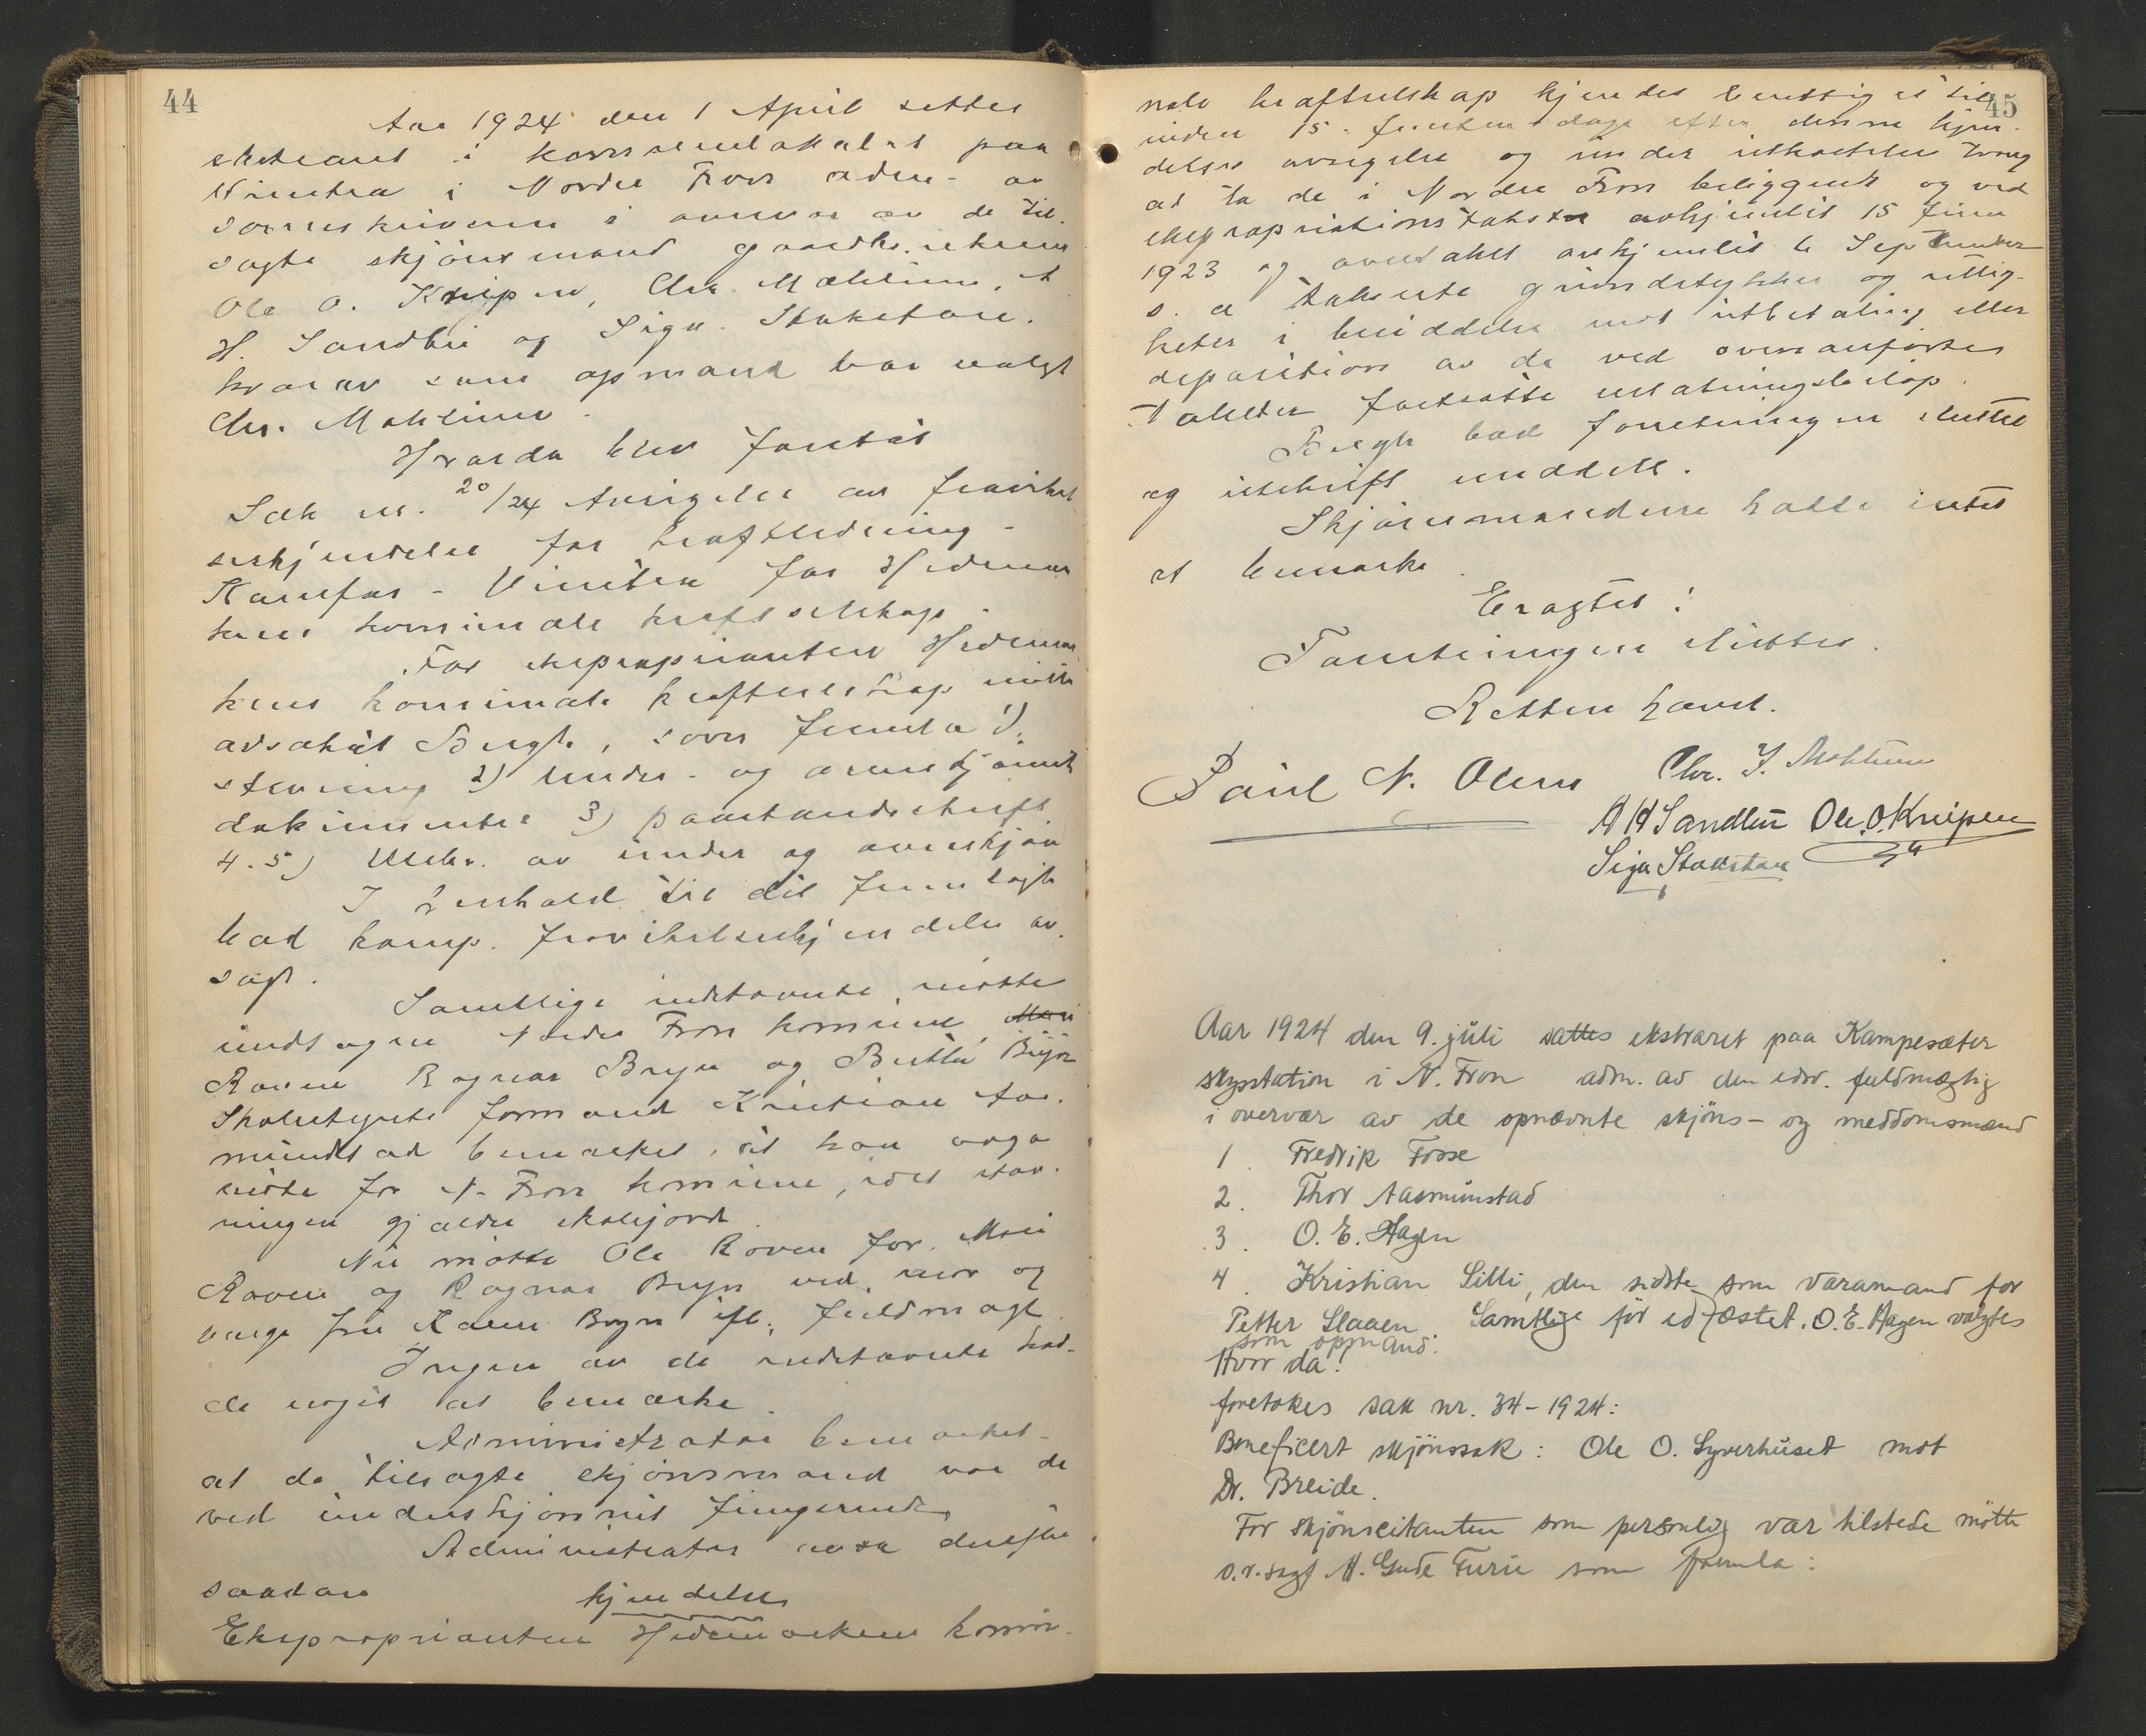 44
Aar 1924 den 1 April settes
ekstraret i kommunelokalet paa
Vinstra i Nordre Fron adm. av
sorenskriveren i overvær av de til-
sagte skjønsmænd gaardbrukerne
Ole O. Kneipen, Chr. Mæhlum, A
H. Sandbu og Sign. Stokstad.
hvorav som opmand var valgt
Chr. Mæhlum.
Hvorda blev foretat
Sak nr. 20/24 Avsigelse av fravikel-
seskjendelse for kraftledning
Harpefos - Vinstra for Hedemar-
kens kommunale kraftselskap.
For eksproprianten Hedemar
kens kommunale kraftselskap møtte
advokat Bergh, som fremla 1)
stevning 2) under- og overskjønnets
dokumenter 3) paastandsskrift
4.5) Utskr. av under og overskjøn
I henhold til det fremlagte
bad komp. fravikelseskjendelse av-
sagt.
Samtlige indstevnte møtte
undtagen Nordre Fron kommune, Mari
Roven Ragnar Bryn og
Skolestyrets formand Kristian Aas-
mundstad bemerket, at han ogsaa
møtte for N. Fron kommune, idet stev-
ningen gjælder skolejord.
Nu møtte Ole Roven for Mari
Roven og Ragnar Bryn ved mor og
verge fru Karen Bryn ifl. fuldmagt
Ingen av de indstevnte had-
de noget at bemærke.
Administrator bemerket
at de tilsagte skjønsmænd var de
ved underskjønnet fungerende
Administrator avsa derefter
saadan
kjendelse
Eksproprianten Hedemarkens kommu-
45
nale kraftselskap kjendes berettiget til
inden 15 - femten dage efter denne kjen-
delses avsigelse og under utkastelses tvang
at ta de i Nordre Fron beliggende og ved
ekspropriationstakst avhjemlet 15 juni
1923 og overtakst avhjemlet 6 September
s. a. takserte grundstykker og rettig-
heter i besiddelse mot utbetaling eller
deposition av de ved ovenanførte
takster fastsatte erstatningsbeløp.
Bergh bad forretningen sluttet
og utskrift meddelt.
Skjønsmændene hadde intet
at bemærke.
Eragtet:
Forretningen sluttes.
Retten hævet.
Paul N. Olsen Chr. J. Mæhlum
A H Sandbu Ole. O. Kneipen
Sign Stokstad
Aar 1924 den 9. juli sattes ekstraret paa Kampesæter
skysstation i N. Fron adm. av den edsv. fuldmægtig
i overvær av de opnævnte skjöns- og meddomsmænd
1. Fredrik Fosse
2. Thor Aasmundstad
3. O. E. Hagen
4. Kristian Lilli, den sidste som varamand for
Petter Slaaen. Samtlige för edfæstet. O. E. Hagen valgtes
som opmand.
Hvor da!
foretokes sak nr. 34 - 1924:
Beneficert skjönssak: Ole O. Syverhuset mot
Dr. Breide.
For skjöncitanten som personlig var tilstede mötte
o.r.sagf. H. Gude Furu som fremla: